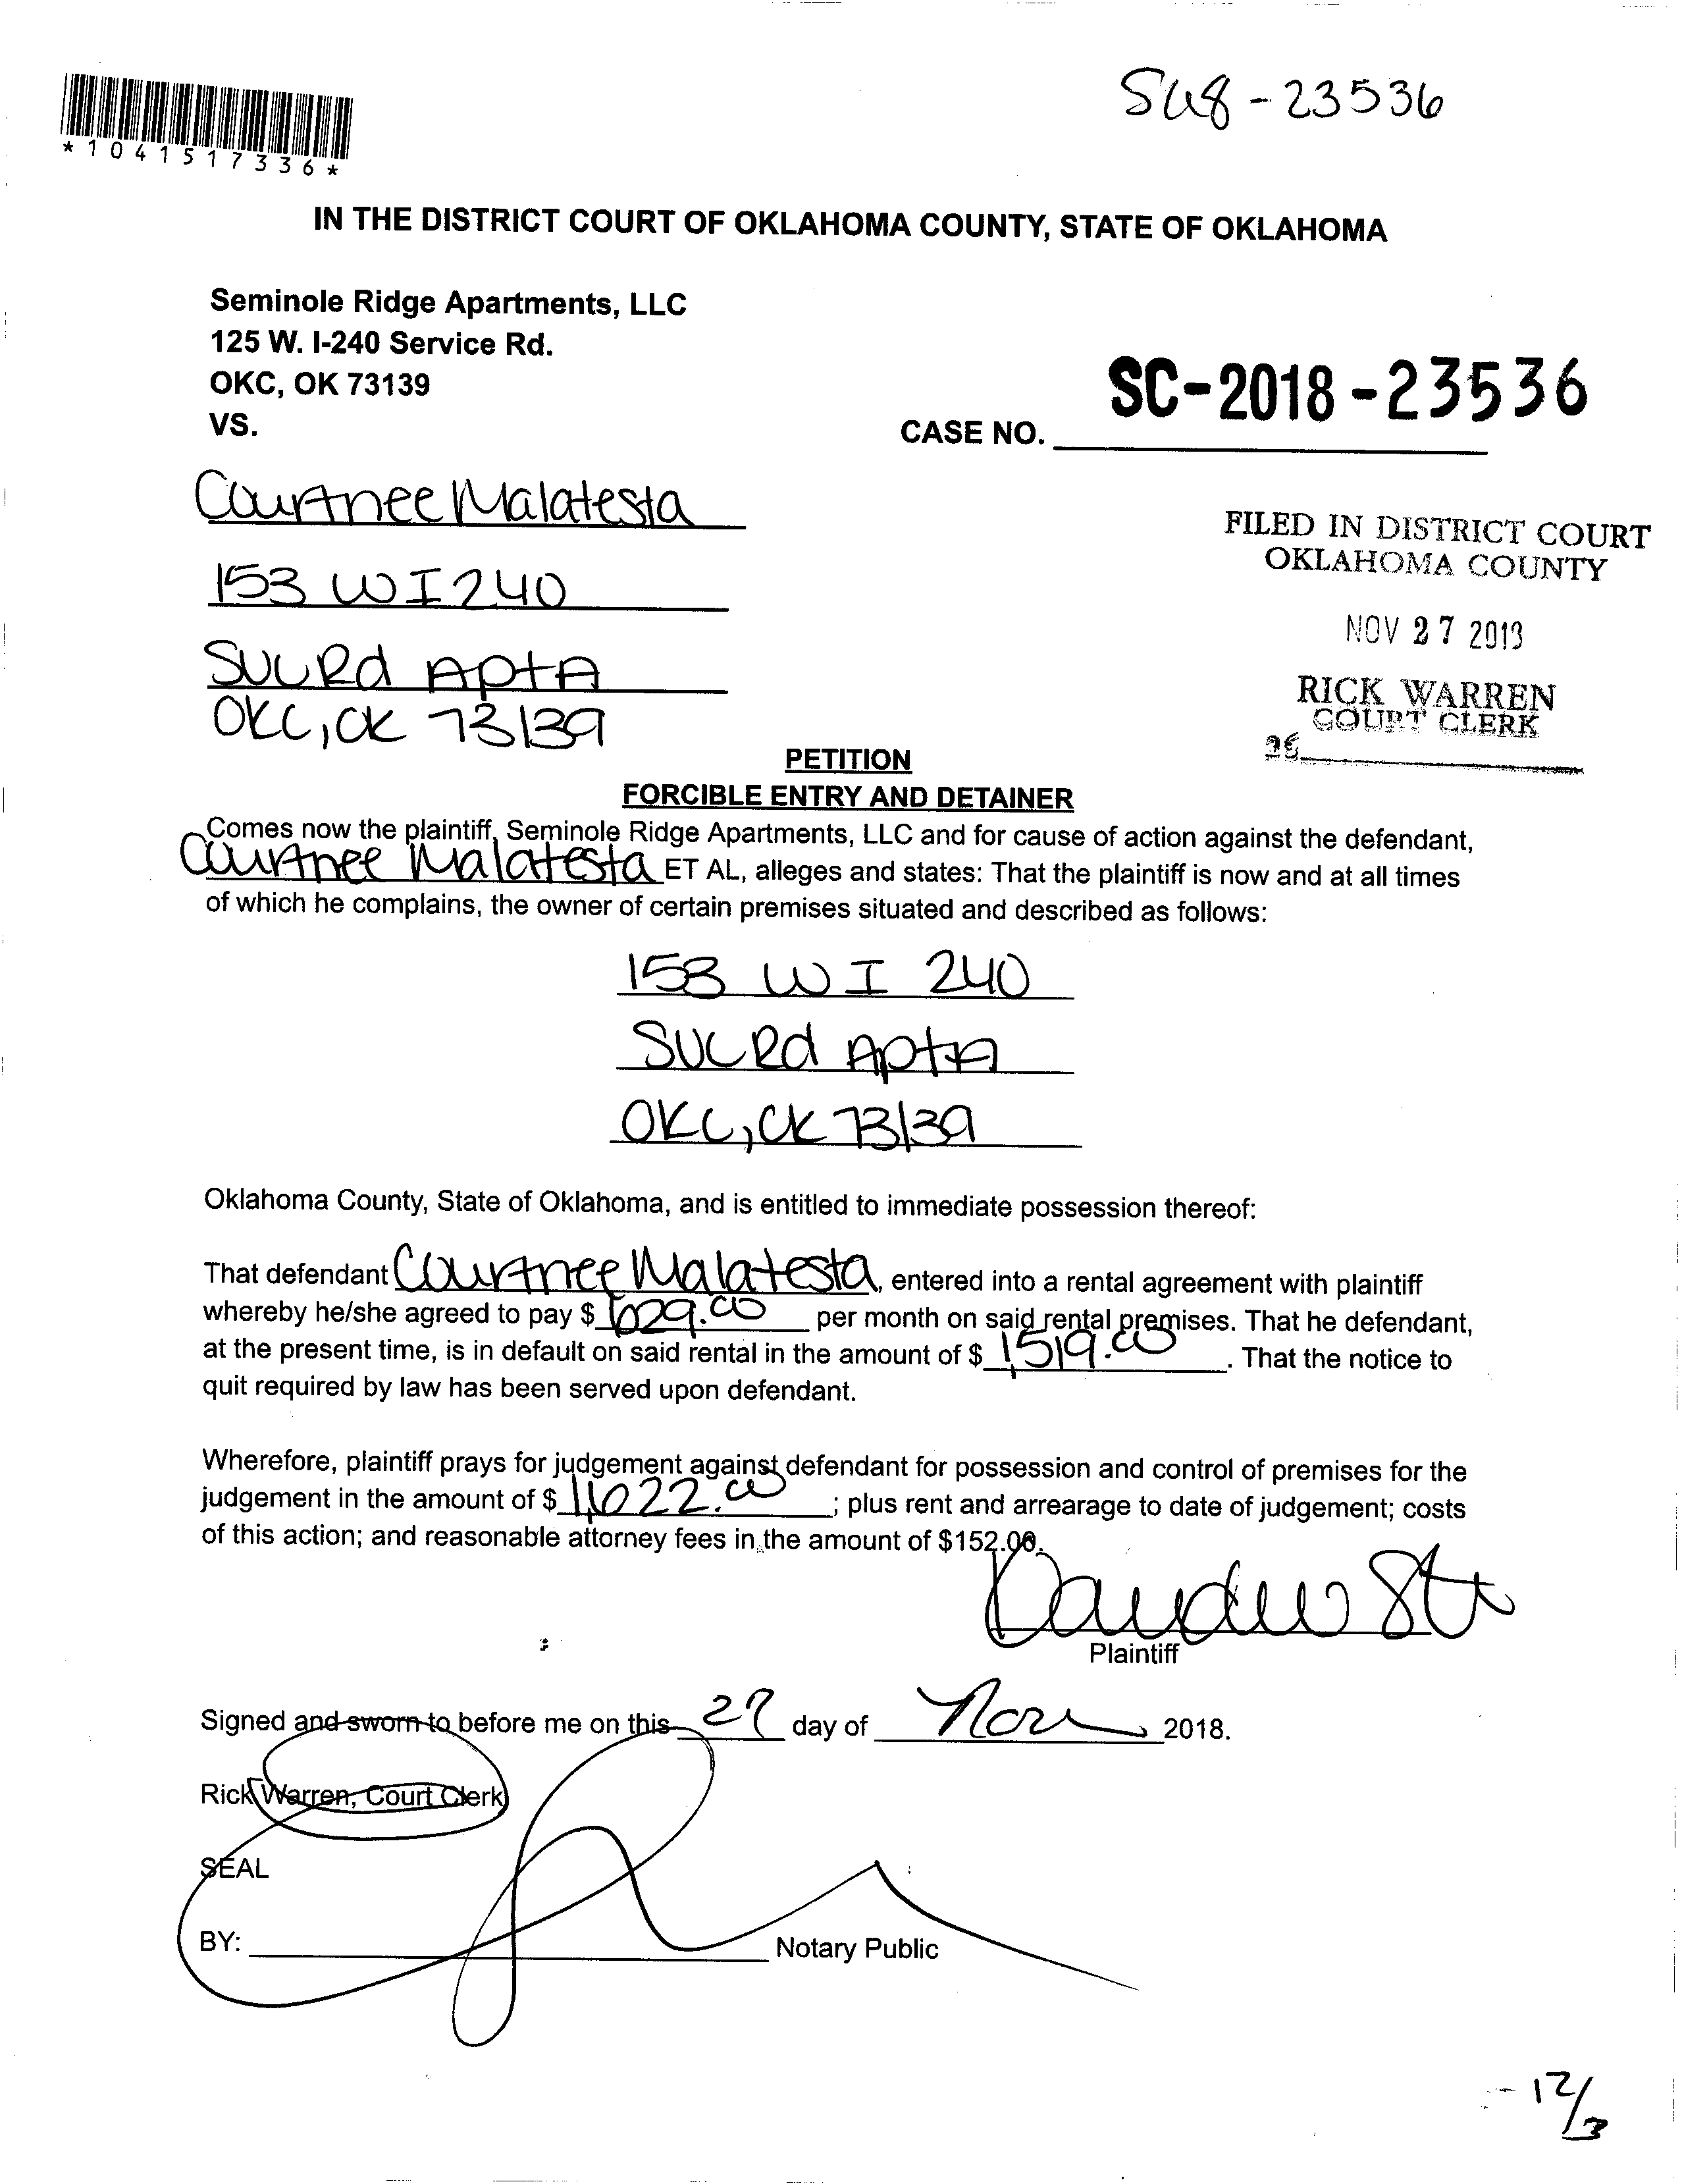 SC18-23536
*1041517336*
IN THE DISTRICT COURT OF OKLAHOMA COUNTY, STATE OF OKLAHOMA
Seminole Ridge Apartments, LLC
125 W. I-240 Service Rd.
OKC, OK 73139
VS.
SC-2018-23536
CASE NO.
Courtnee Malatesta
153 W I 240
SVC Rd Apt A
OKC, OK 73139
FILED IN DISTRICT COURT
OKLAHOMA COUNTY
NOV 27 2018
RICK WARREN
COURT CLERK
PETITION
FORCIBLE ENTRY AND DETAINER
Comes now the plaintiff, Seminole Ridge Apartments, LLC and for cause of action against the defendant,
Courtnee Malatesta ET AL, alleges and states: That the plaintiff is now and at all times
of which he complains, the owner of certain premises situated and described as follows:
153 W I 240
SVC Rd Apt A
OKC, OK 73139
Oklahoma County, State of Oklahoma, and is entitled to immediate possession thereof:
That defendant Courtnee Malatesta, entered into a rental agreement with plaintiff
whereby he/she agreed to pay $ 629.00 per month on said rental premises. That he defendant,
at the present time, is in default on said rental in the amount of $ 1,519.00. That the notice to
quit required by law has been served upon defendant.
Wherefore, plaintiff prays for judgement against defendant for possession and control of premises for the
judgement in the amount of $ 1,622.00; plus rent and arrearage to date of judgement; costs
of this action; and reasonable attorney fees in the amount of $152.00.
Plaintiff
Signed and sworn to before me on this 27 day of Nov 2018.
Rick Warren, Court Clerk
SEAL
BY: Notary Public
- 12/3